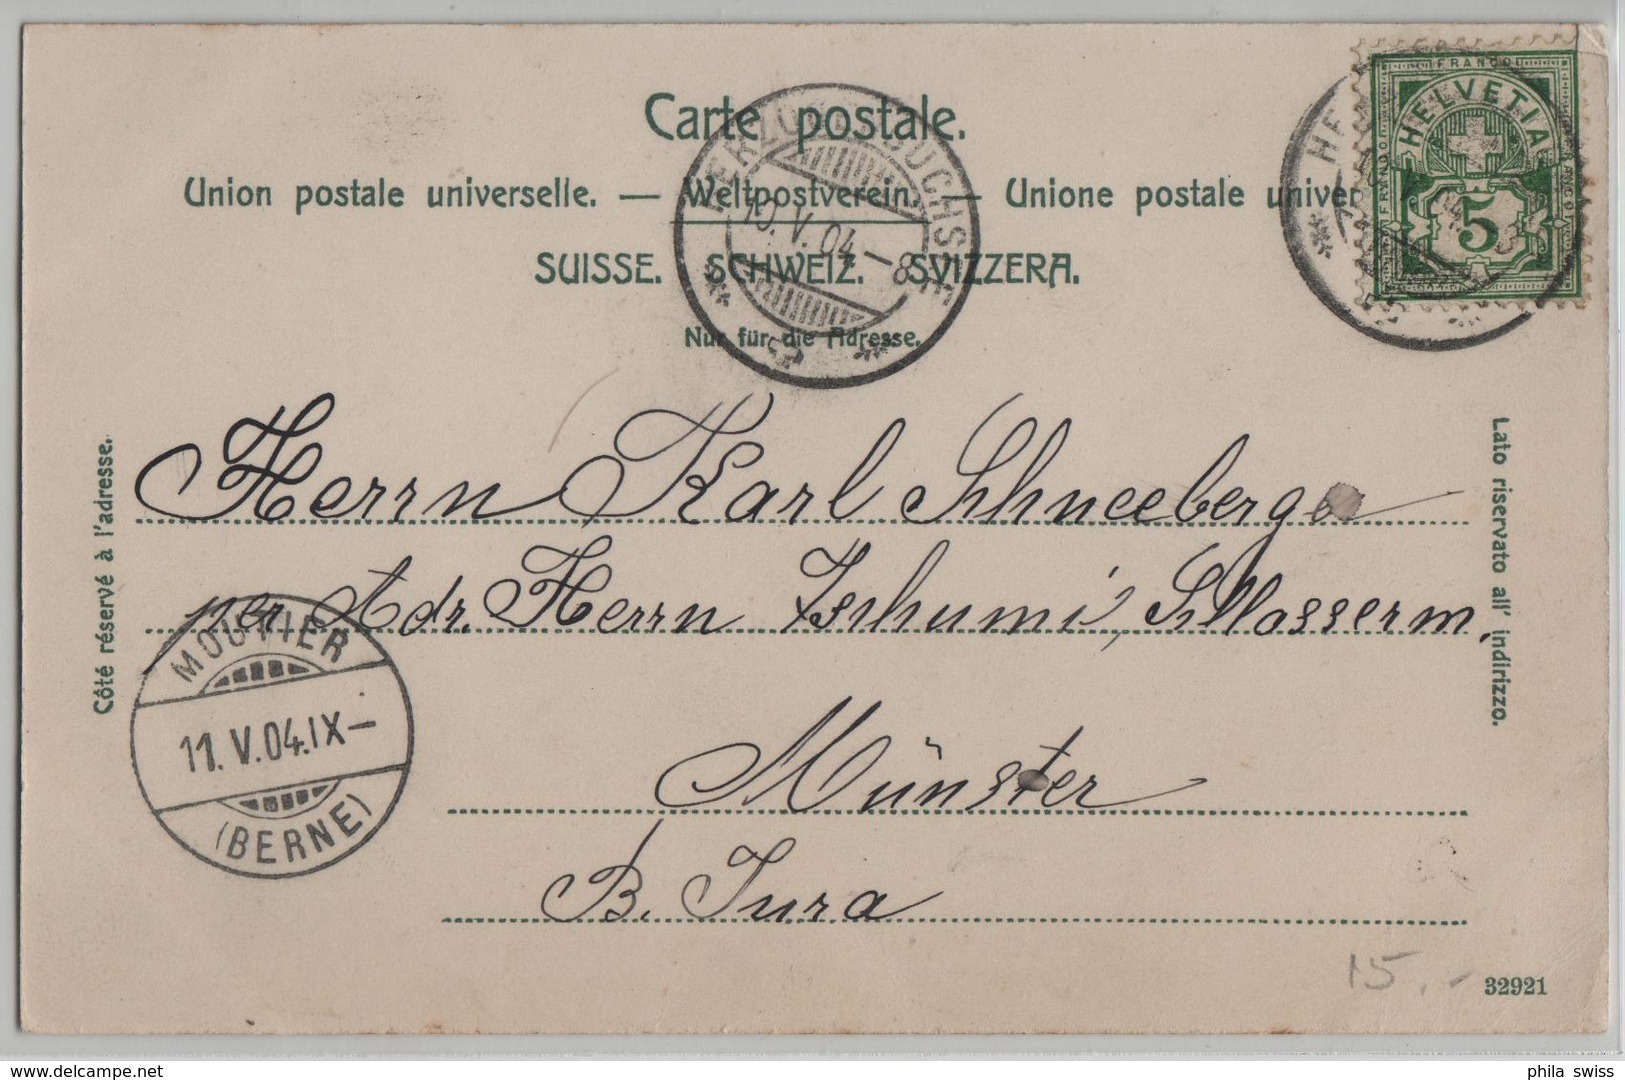 Carte postale.
Union postale universelle. — Weltpostverein. — Unione postale univer
SUISSE. SCHWEIZ. SVIZZERA.
Nur für die Adresse.
HERZOGENBUCHSEE
10. V. 04 – 8
FRANCO
HELVETIA
FRANCO
5
Côté réservé à l'adresse.
Lato riservato all' indirizzo.
Herrn Karl Schneeberger
per Adr. Herrn Tschumi, Schlosserm.
Münster
B. Jura
MOUTIER
11. V. 04. IX –
(BERNE)
15.-
32921
delcampe.net
phila swiss